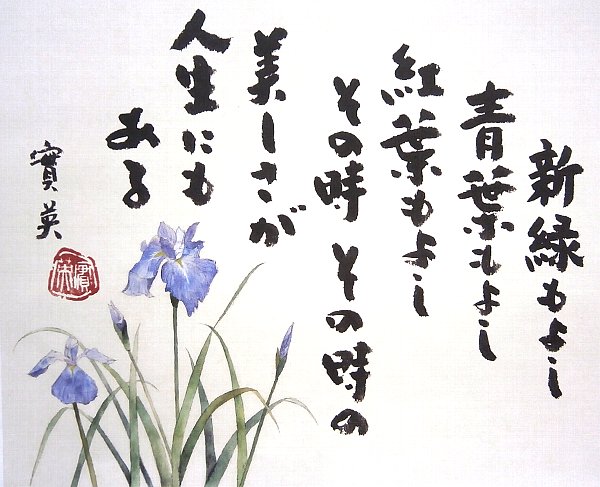 新緑もよし
青葉もよし
紅葉もよし
その時その時の
美しさが
人生にも
ある
實英